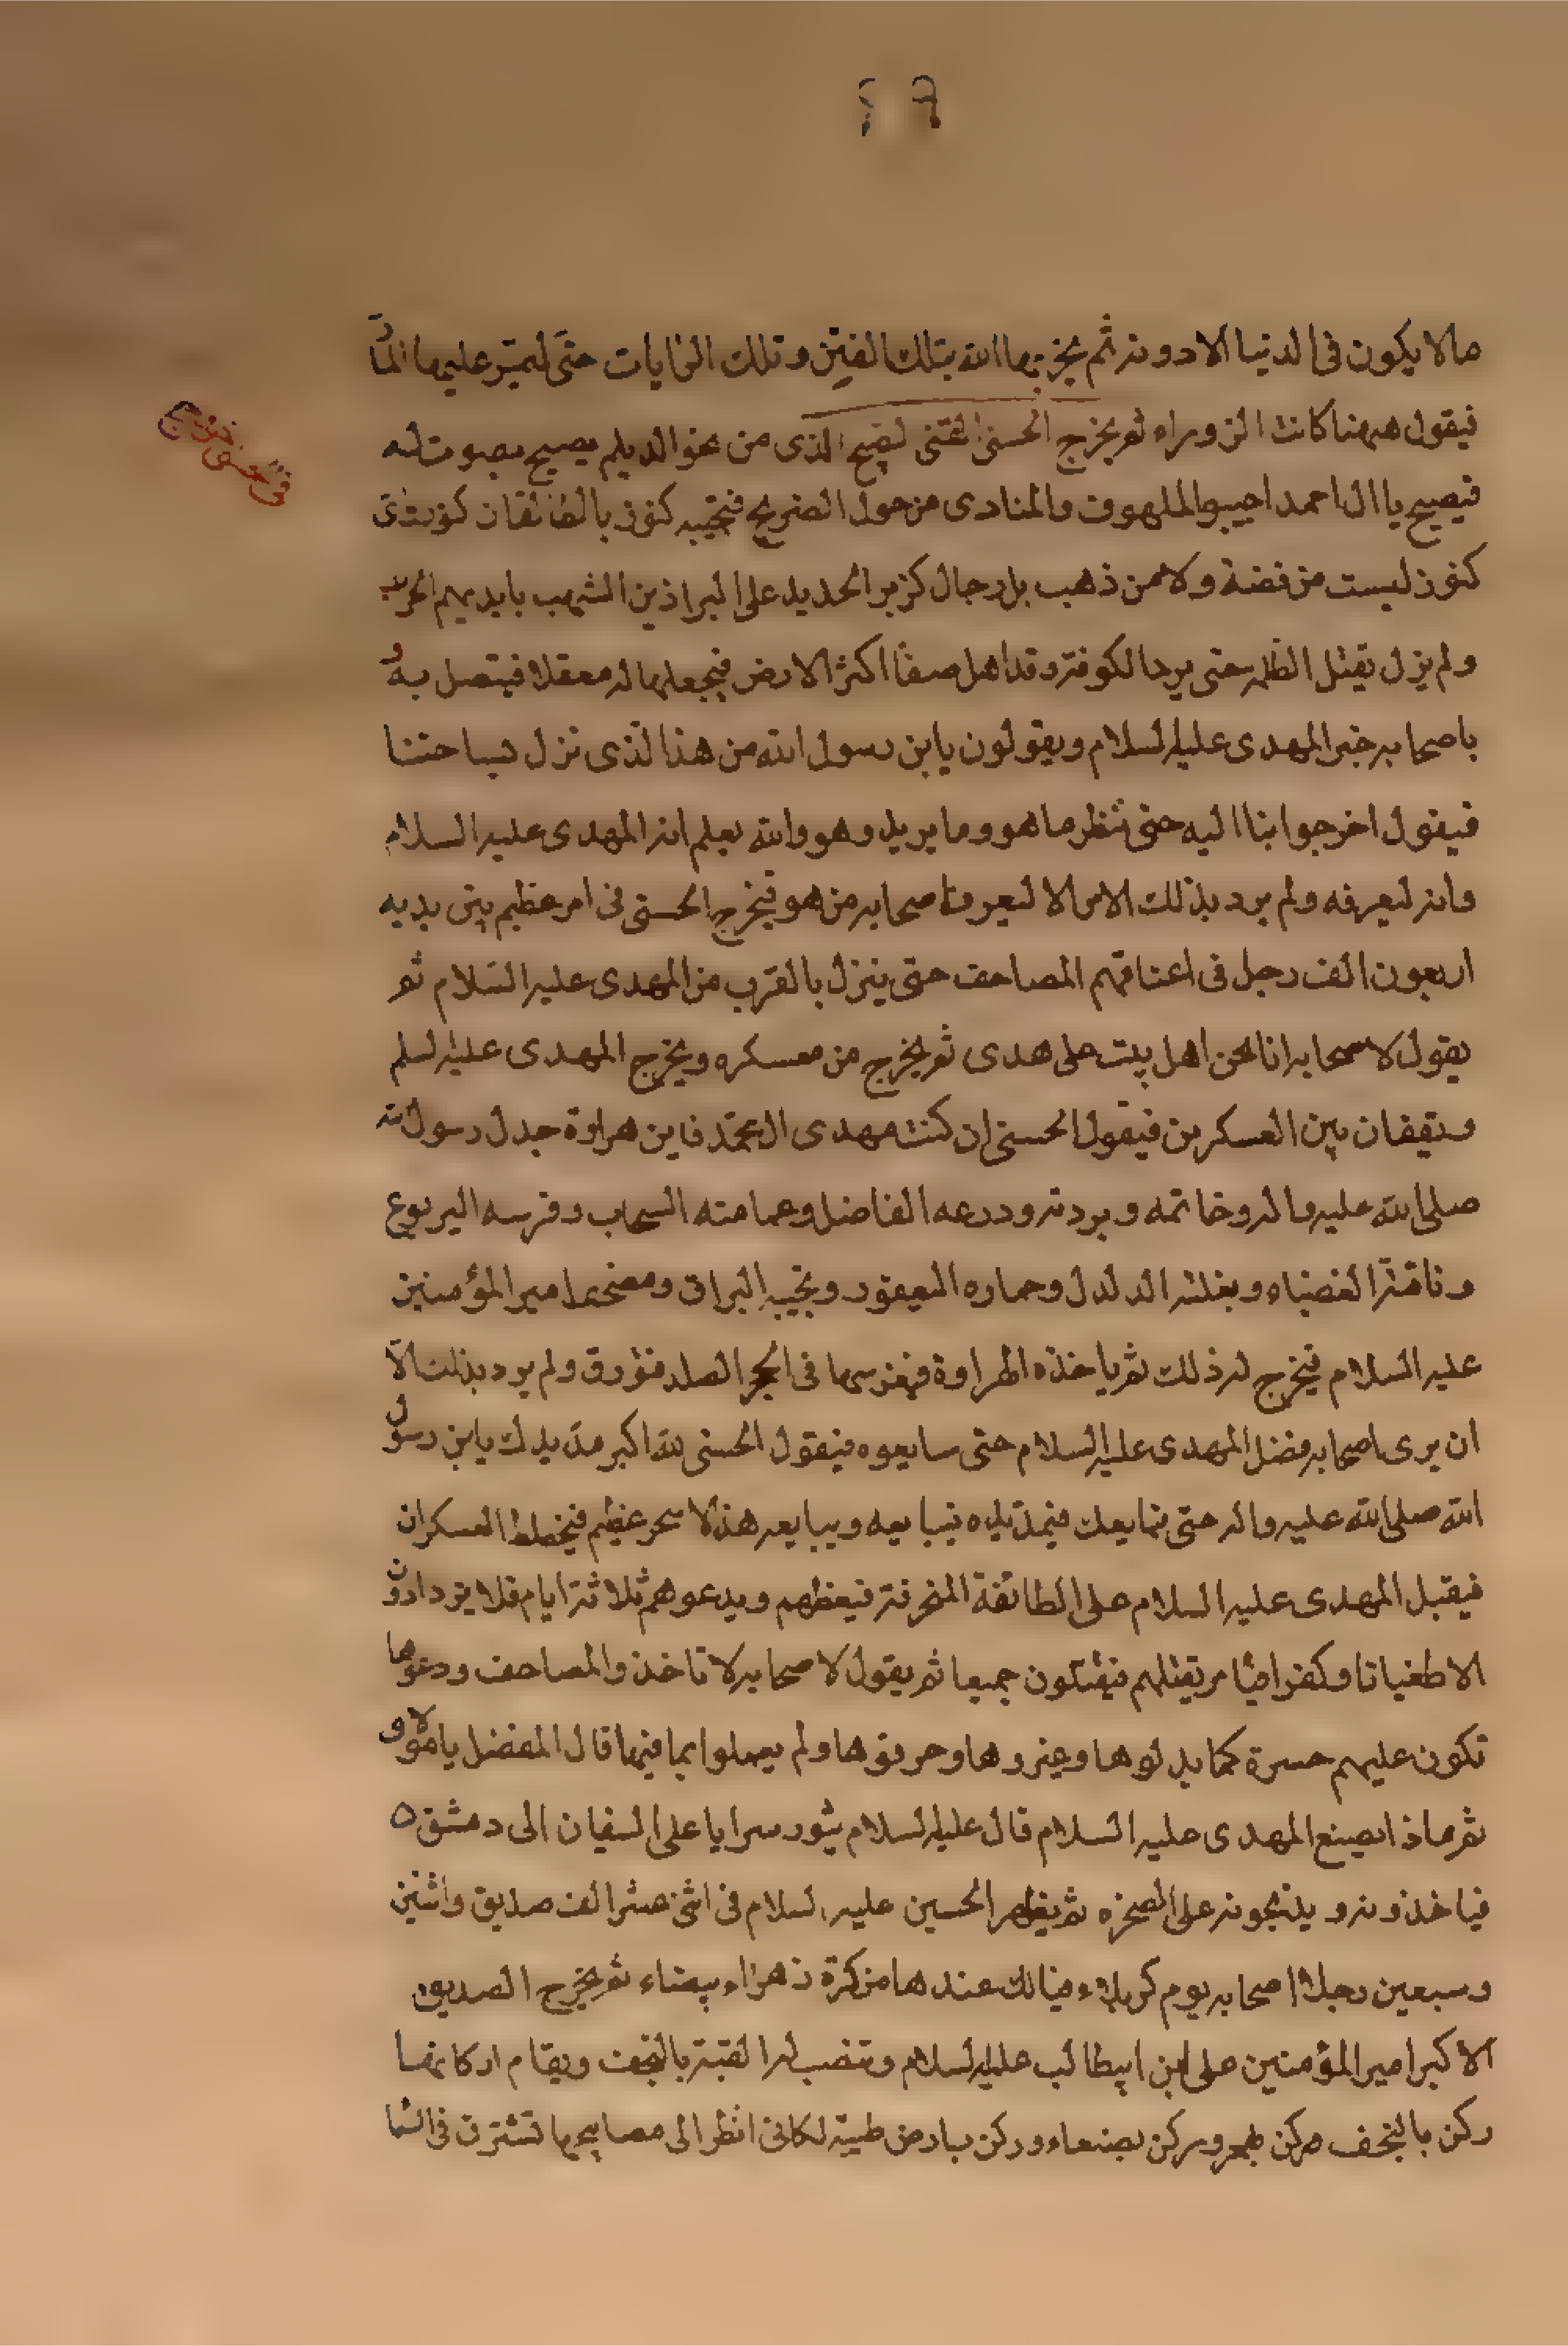 ما لا يكون فى الدنيا الا دونه ثم يخربها الله بتلك الفتن وتلك الرايات حتى ليمر عليها المار
فيقول ههنا كانت الزوراء ثم يخرج الحسنى الفتى الصبيح الذى من نحو الديلم يصيح بصوت له
فيصيح يا ال احمد اجيبوا الملهوف والمنادى من حول الضريح فتجيبه كنوز بالطالقان كنوز
كنوز ليست من فضة ولا من ذهب بل رجال كزبر الحديد على البراذين الشهب بايديهم الحرب
ولم يزل يقتل الظلمه حتى يرد الكوفة وقد اهل صفا اكثر الارض فيجعلها له معقلا فيتصل به و
باصحابه خبر المهدى عليه السلام ويقولون يابن رسول الله من هذا لذى نزل بساحتنا
فيقول اخرجوا بنا اليه حتى ننظر ما هو وما يريد وهو والله يعلم انه المهدى عليه السلام
وانه ليعرفه ولم يرد بذلك الامر الا ليعرف اصحابه من هو فيخرج الحسنى فى امر عظيم بين يديه
اربعون الف رجل فى اعناقهم المصاحف حتى ينزل بالقرب من المهدى عليه السلام ثم
يقول لاصحابه انا نحن اهل بيت على هدى ثم يخرج من معسكره ويخرج المهدى عليه السلم
ويقفان بين العسكرين فيقول الحسنى ان كنت مهدى ال محمد فاين هراوة جدك رسول الله
صلى الله عليه واله وخاتمه وبردته ودرعه الفاضل وعمامته السحاب وفرسه اليربوع
وناقته الغضباء وبغلته الدلدل وحماره اليعفور ونجيبه البراق ومصحف امير المؤمنين
عليه السلام فيخرج له ذلك ثم ياخذ الهراوة فيغرسها فى الحجر الصلد فتورق ولم يرد بذلك الا
ان يرى اصحابه فضل المهدى عليه السلام حتى سايعوه فيقول الحسنى لله اكبر مد يدك يابن رسول
الله صلى الله عليه واله حتى نبايعك فيمد يده فيبايعه ويبايعه فيختلط العسكران
فيقبل المهدى عليه السلام على الطائفة المنحرفة فيعظهم ويدعوهم ثلاثة ايام فلا يزدادون
الا طغيانا وكفرا فيامر بقتلهم فيقتلون جميعا ثم يقول لاصحابه لا تاخذوا المصاحف ودعوها
تكون عليهم حسرة كما بدلوها وغيروها وحرفوها ولم يعملوا بما فيها قال المفضل يا مولاى
ثم ماذا يصنع المهدى عليه السلام قال عليه السلام يثور سرايا على السفيان الى دمشق
فياخذونه ويذبحونه على الصخره ثم يظهر الحسين عليه السلام فى اثنى عشر الف صديق واثنين
وسبعين رجلا اصحابه يوم كربلاء فيالك عندها من كرة زهراء بيضاء ثم يخرج الصديق
الاكبر امير المؤمنين على ابن ابيطالب عليه السلام وتنصب له القبة بالنجف ويقام اركانها
ركن بالنجف وركن بهجر وركن بصنعاء وركن بارض طيبة لكانى انظر الى مصابيحها تشرق فى السما